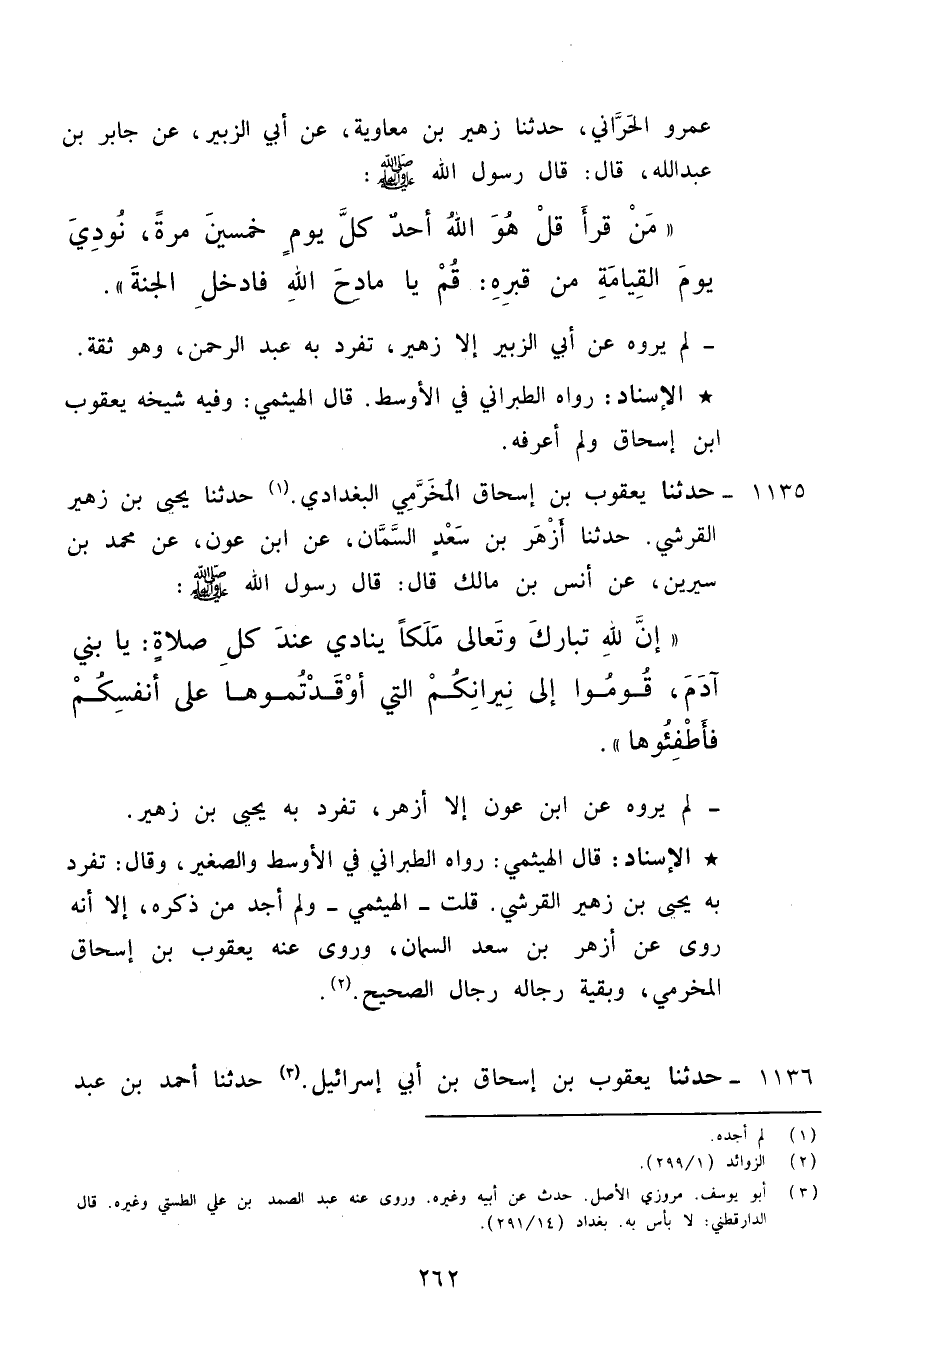 عمرو الحَرَّاني، حدثنا زهير بن معاوية، عن أبي الزبير، عن جابر بن
عبدالله، قال: قال رسول الله ﷺ :
« مَنْ قرأَ قلْ هُوَ اللهُ أحدٌ كلَّ يومٍ خمسينَ مرةً، نُودِيَ
يومَ القِيامَةِ من قبرِهِ: قُمْ يا مادِحَ اللهِ فادخلِ الجنةَ ».
ـ لم يروه عن أبي الزبير إلا زهير، تفرد به عبد الرحمن، وهو ثقة.
★ الإسناد: رواه الطبراني في الأوسط. قال الهيثمي: وفيه شيخه يعقوب
ابن إسحاق ولم أعرفه.
١١٣٥ ـ حدثنا يعقوب بن إسحاق المُخَرَّمِي البغدادي.(١) حدثنا يحيى بن زهير
القرشي. حدثنا أَزْهَر بن سَعْدٍ السَّمَّان، عن ابن عون، عن محمد بن
سيرين، عن أنس بن مالك قال: قال رسول الله ﷺ :
« إنَّ للهِ تباركَ وتَعالى مَلَكاً ينادي عندَ كلِ صلاةٍ: يا بني
آدَمَ، قُومُوا إلى نِيرانِكُمْ التي أوْقَدْتُموها على أنفسِكُمْ
فأَطْفِئُوها ».
ـ لم يروه عن ابن عون إلا أزهر، تفرد به يحيى بن زهير.
★ الإسناد: قال الهيثمي: رواه الطبراني في الأوسط والصغير، وقال: تفرد
به يحيى بن زهير القرشي. قلت ـ الهيثمي ـ ولم أجد من ذكره، إلا أنه
روى عن أزهر بن سعد السمان، وروى عنه يعقوب بن إسحاق
المخرمي، وبقية رجاله رجال الصحيح.(٢).
١١٣٦ ـ حدثنا يعقوب بن إسحاق بن أبي إسرائيل.(٣) حدثنا أحمد بن عبد
(١) لم أجده.
(٢) الزوائد (٢٩٩/١).
(٣) أبو يوسف. مروزي الأصل. حدث عن أبيه وغيره. وروى عنه عبد الصمد بن علي الطستي وغيره. قال
الدارقطني: لا بأس به. بغداد (٢٩١/١٤).
٢٦٢